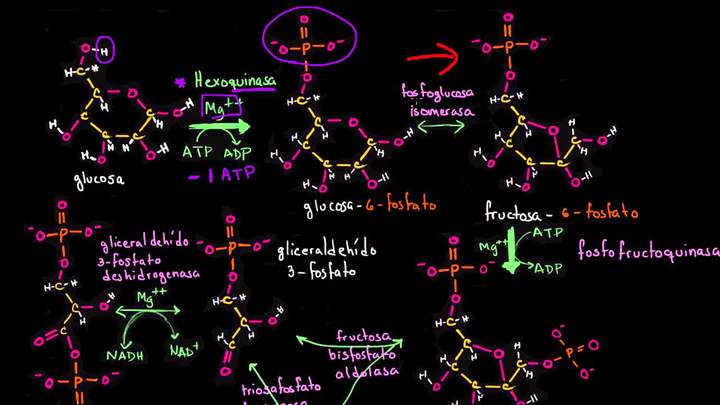 * Hexoquinasa
Mg++
ATP ADP
- 1 ATP
glucosa
glucosa - 6 - fosfato
fosfoglucosa
isomerasa
fructosa - 6 - fosfato
Mg++
ATP
ADP
fosfofructoquinasa
gliceraldehído
3-fosfato
deshidrogenasa
Mg++
NADH NAD+
gliceraldehído
3-fosfato
fructosa
bisfosfato
aldolasa
triosafosfato